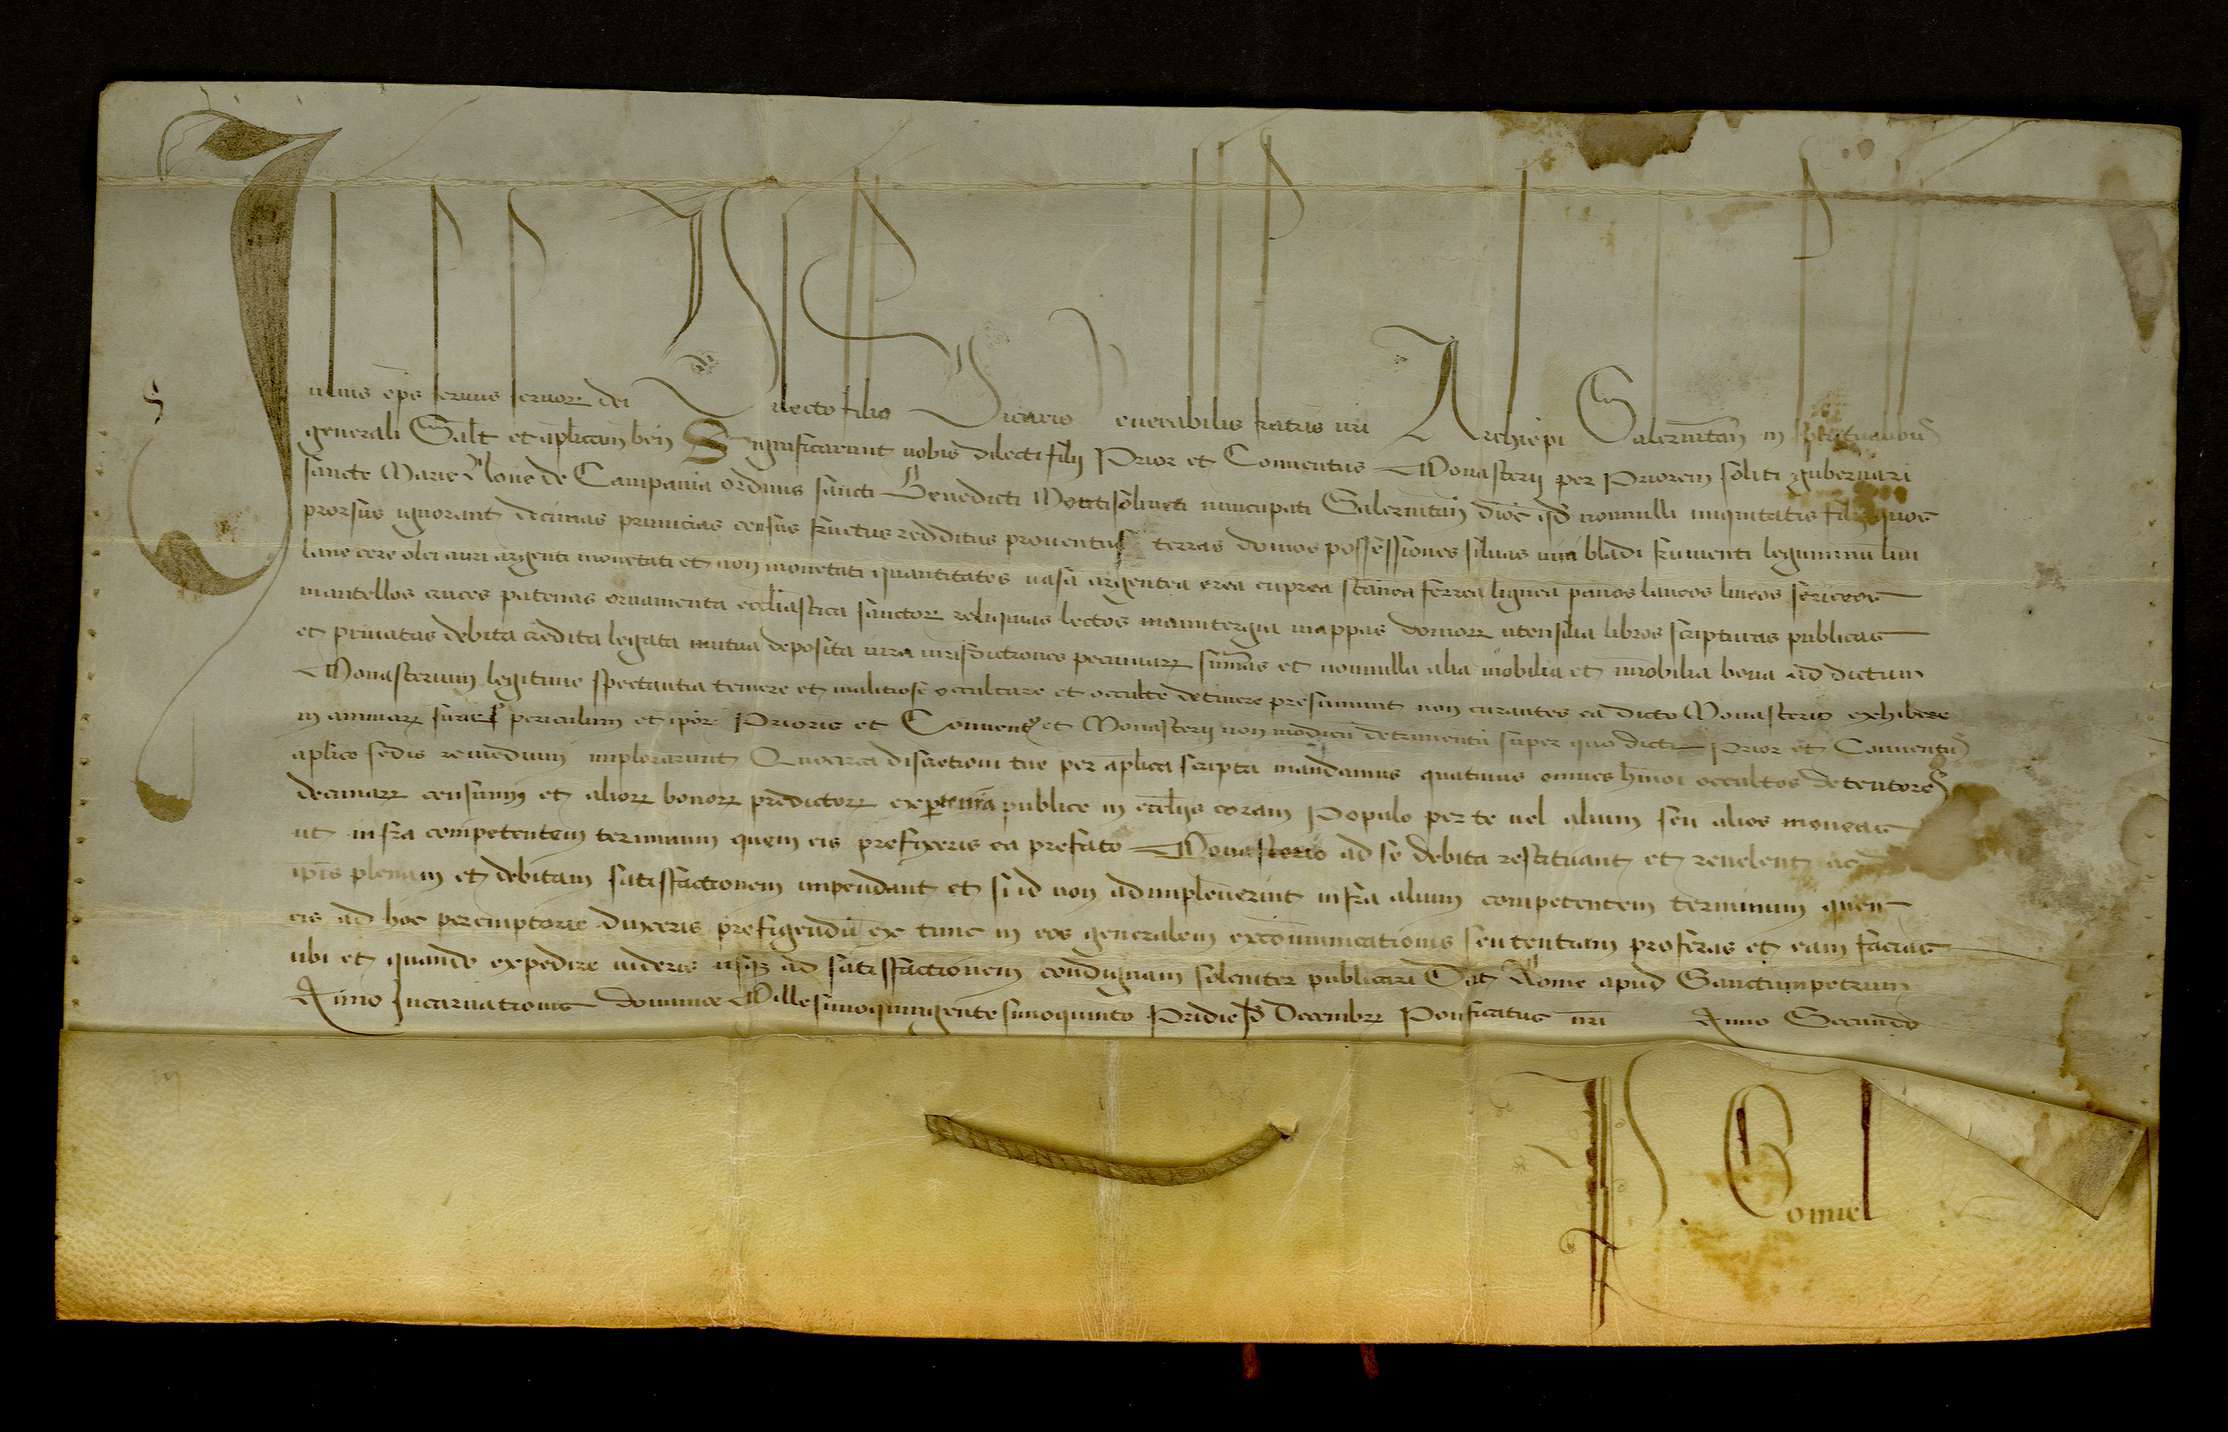 Iulius ep̄s seruus seruoꝝ dei Dilecto filio Vicario Venerabilis fratris nr̄i Archiep̄i Salernitan̄ in spiritualibus
generali Sal̄t et ap̄licam ben̄ Significarunt nobis dilecti filij Prior et Conuentus Monasterij per Priorem soliti gubernari
sancte Marie Noue de Campania ordinis sancti Benedicti nuncupati Salernitan̄ dioc̄ qd̄ nonnulli iniquitatis filij quos
prorsus ignorant decimas primicias census fructus redditus prouentus terras domos possessiones siluas uini bladi frumenti leguminū lini
lane cere olei auri argenti monetati et non monetati quantitates uasa argentea erea cuprea stānea ferrea lignea pannos laneos lineos sericeos
mantellos cruces patenas ornamenta eccl̄iastica sanctoꝝ reliquias lectos manutergia mappas domoꝝ utensilia libros scripturas publicas
et priuatas debita credita legata mutua deposita iura iurisdictiones pecuniaꝝ sum̄as et nonnulla alia mobilia et im̄obilia bona ad dictum
Monasterium legitime spectantia temere et malitiose occultare et occulte detinere presumunt non curantes ea dicto Monasterio exhibere
in animaꝝ suaꝝ periculum et ip̄oꝝ Prioris et Conuentꝯ et Monasterij non modicū detrimentū super quo dicti Prior et Conuentus
ap̄lice sedis remedium implorarunt Quocirca discretioni tue per ap̄lica scripta mandamus quatinus omnes hm̄oi occultos detentores
decimaꝝ censuum et alioꝝ bonoꝝ predictoꝝ ex parte nr̄a publice in eccl̄ijs coram Populo per te uel alium seu alios moneas
ut infra competentem terminum quem eis prefixeris ea prefato Monasterio ad se debita restituant et reuelent ac de
ip̄is plenam et debitam satisfactionem impendant et si id non adimpleuerint infra alium competentem terminum quem
eis ad hoc peremptorie duxeris prefigendū ex tunc in eos generalem excōmunicationis sententiam proferas et eam facias
ubi et quando expedire uideris usqꝫ ad satisfactionem condignam solenniter publicari Dat̄ Rome apud Sanctumpetrum
Anno Incarnationis dominice Millesimoquingentesimoquinto Pridie Id̄ Decembꝝ Pontificatus nr̄i Anno Secundo